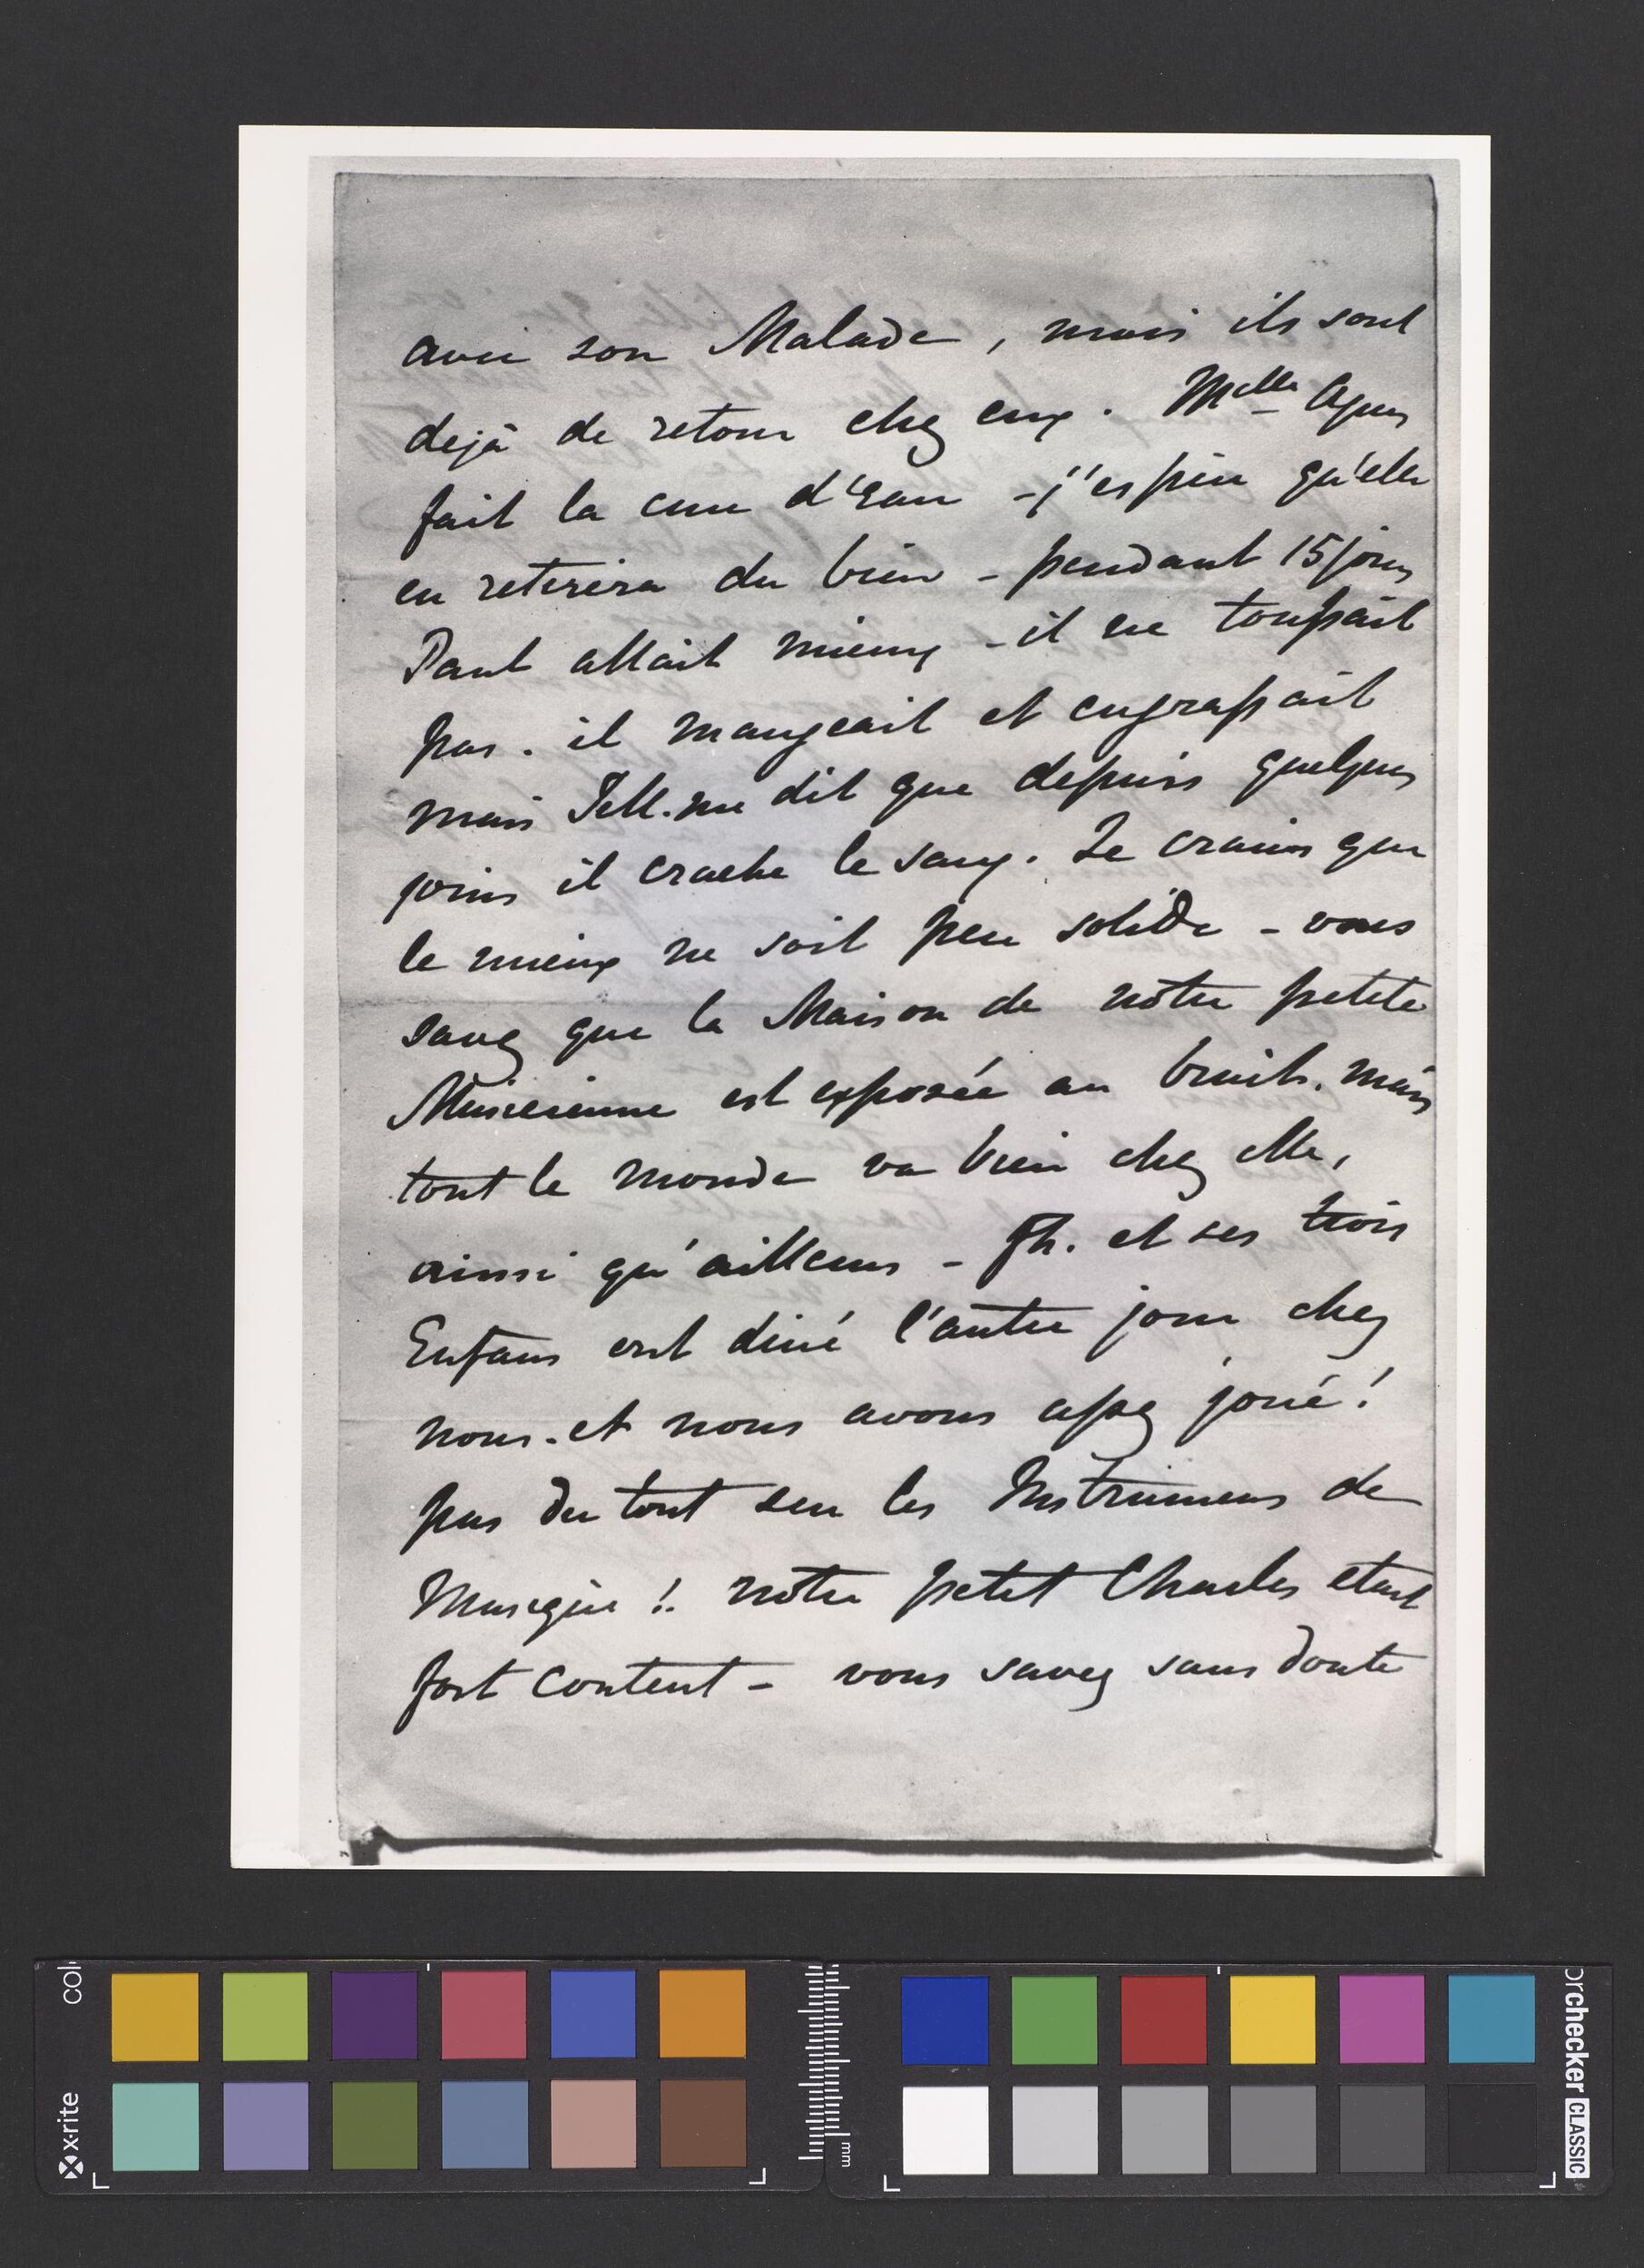 avec son Malade, mais ils sont
dejà de retour chez eux. Melle Agnes
fait la cure d'Eau - j'espère qu'elle
en retirera du bien - pendant 15 jours
Paul allait mieux - il ne toussait
pas. il mangeait et engraissait
mais me dit que depuis quelques
jours il crache le sang. Je crains que
le mieux ne soit peu solide - vous
savez que la Maison de nôtre petite
Musicienne est exposée au bruit. mais
tout le monde va bien chez elle,
ainsi qu'ailleurs - et ses trois
Enfans ont diné l'autre jour chez
nous. et nous avons assez joué!
pas du tout sur les Instrumens de
Musique!. nôtre petit Charles etait
fort content - vous savez sans doute
colorchecker CLASSIC
x-rite
mm